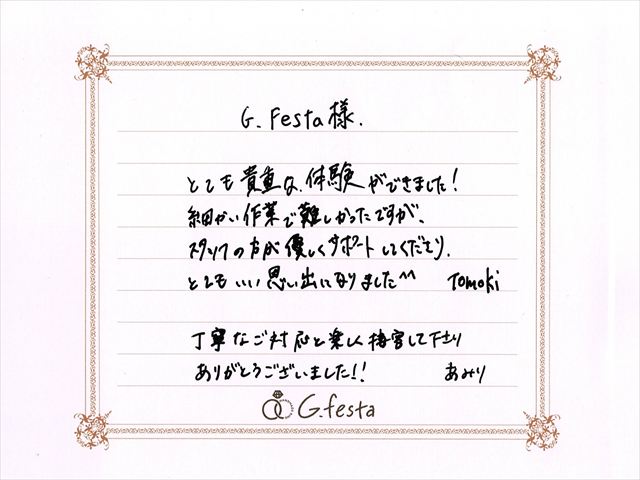 G. Festa様.
とても貴重な、体験ができました!
細かい作業で難しかったですが、
スタッフの方が優しくサポートしてくださり、
とてもいい思い出になりました^^ Tomoki
丁寧なご対応と楽しく接客して下さり
ありがとうございました!!
あみり
G.festa